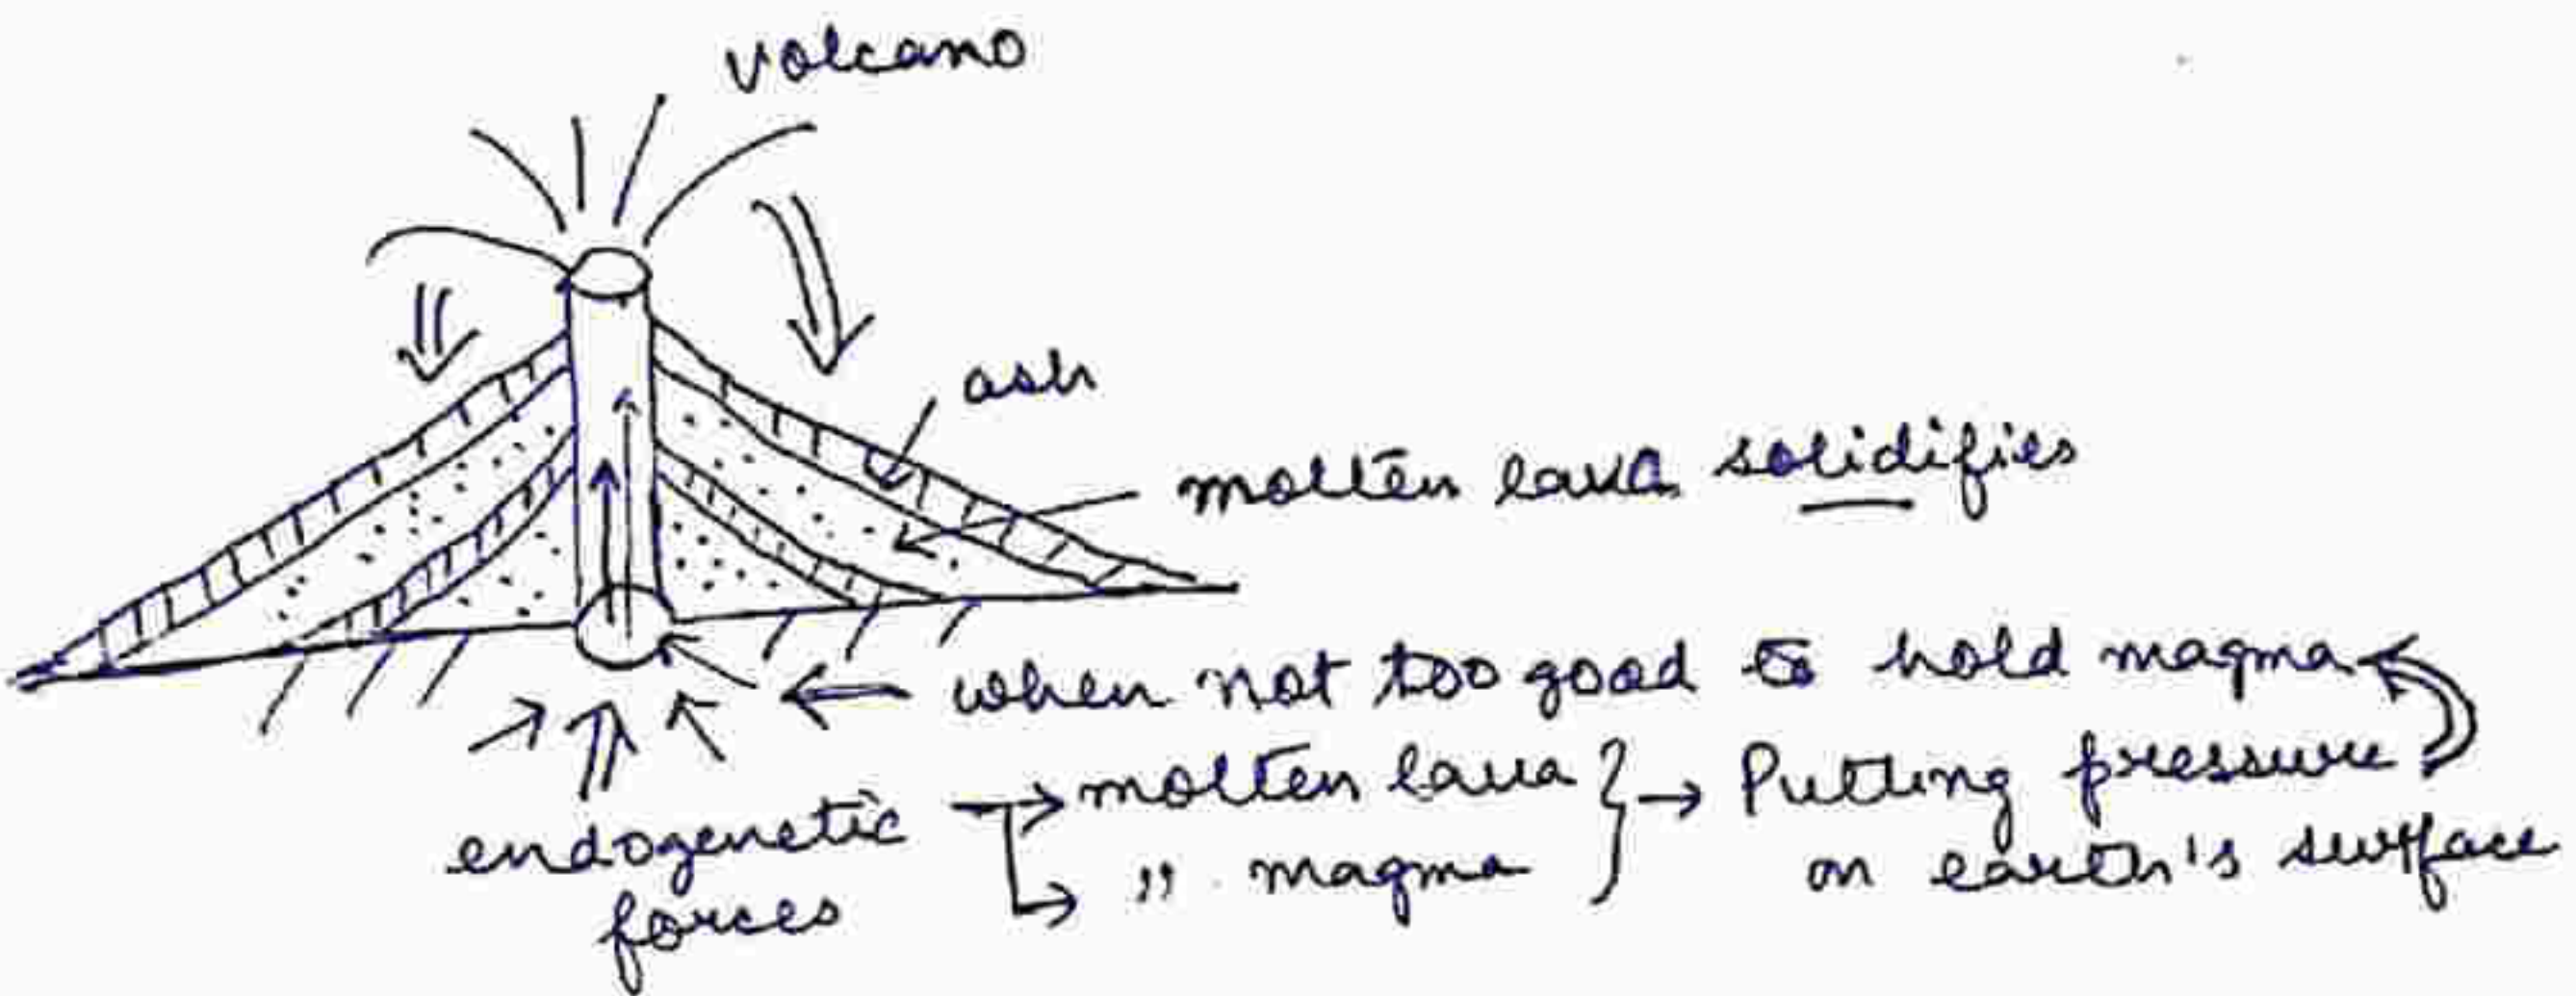 volcano
ash
molten lava solidifies
when not too good to hold magma
endogenetic → molten lava } → Putting pressure
forces → " magma on earth's surface